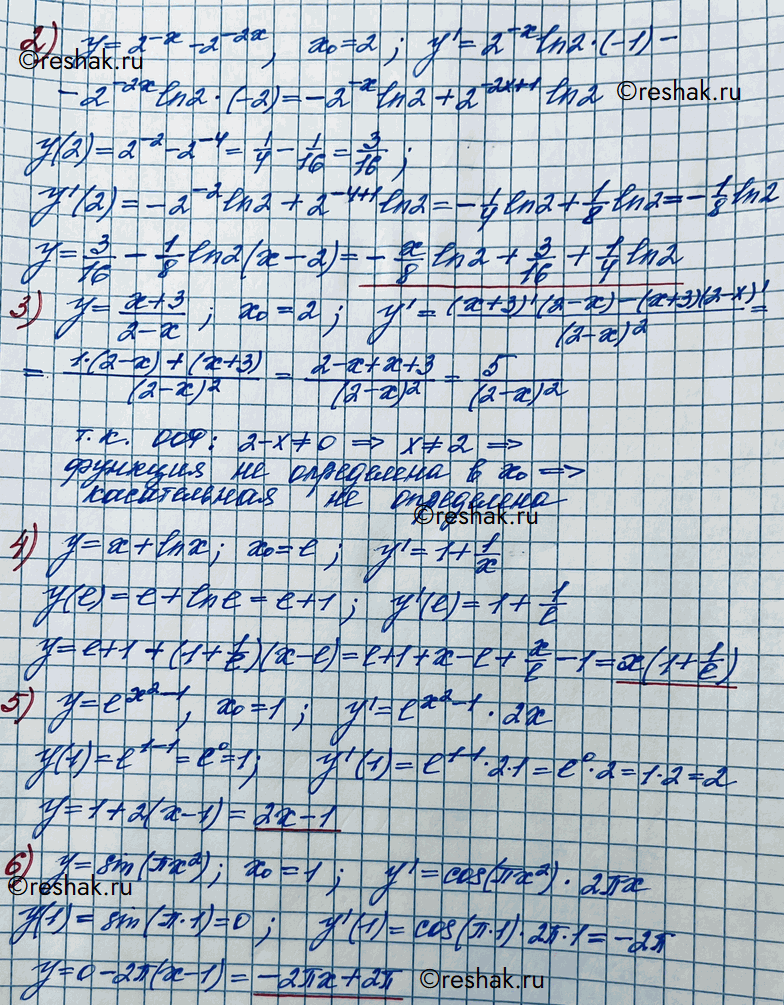 2) y = 2^{-x} - 2^{-2x}, x₀ = 2; y' = 2^{-x} ln2·(-1) -
©reshak.ru
- 2^{-2x} ln2·(-2) = -2^{-x} ln2 + 2^{-2x+1} ln2 ©reshak.ru
y(2) = 2^{-2} - 2^{-4} = 1/4 - 1/16 = 3/16;
y'(2) = -2^{-2} ln2 + 2^{-4+1} ln2 = -1/4 ln2 + 1/8 ln2 = -1/8 ln2
y = 3/16 - 1/8 ln2(x-2) = -x/8 ln2 + 3/16 + 1/4 ln2
3) y = (x+3)/(2-x); x₀ = 2; y' = ((x+3)'(2-x) - (x+3)(2-x)')/(2-x)² =
= (1·(2-x) + (x+3))/(2-x)² = (2-x+x+3)/(2-x)² = 5/(2-x)²
т.к. ООФ: 2-x≠0 ⇒ x≠2 ⇒
функция не определена в x₀ ⇒
касательная не определена
©reshak.ru
4) y = x + lnx; x₀ = e; y' = 1 + 1/x
y(e) = e + lne = e+1; y'(e) = 1 + 1/e
y = e+1 + (1+1/e)(x-e) = e+1+x-e+x/e-1 = x(1+1/e)
5) y = e^{x²-1}, x₀ = 1; y' = e^{x²-1}·2x
y(1) = e^{1-1} = e⁰ = 1; y'(1) = e^{1-1}·2·1 = e⁰·2 = 1·2 = 2
y = 1 + 2(x-1) = 2x-1
6) y = sin(πx²); x₀ = 1; y' = cos(πx²)·2πx
©reshak.ru
y(1) = sin(π·1) = 0; y'(1) = cos(π·1)·2π·1 = -2π
y = 0 - 2π(x-1) = -2πx + 2π ©reshak.ru